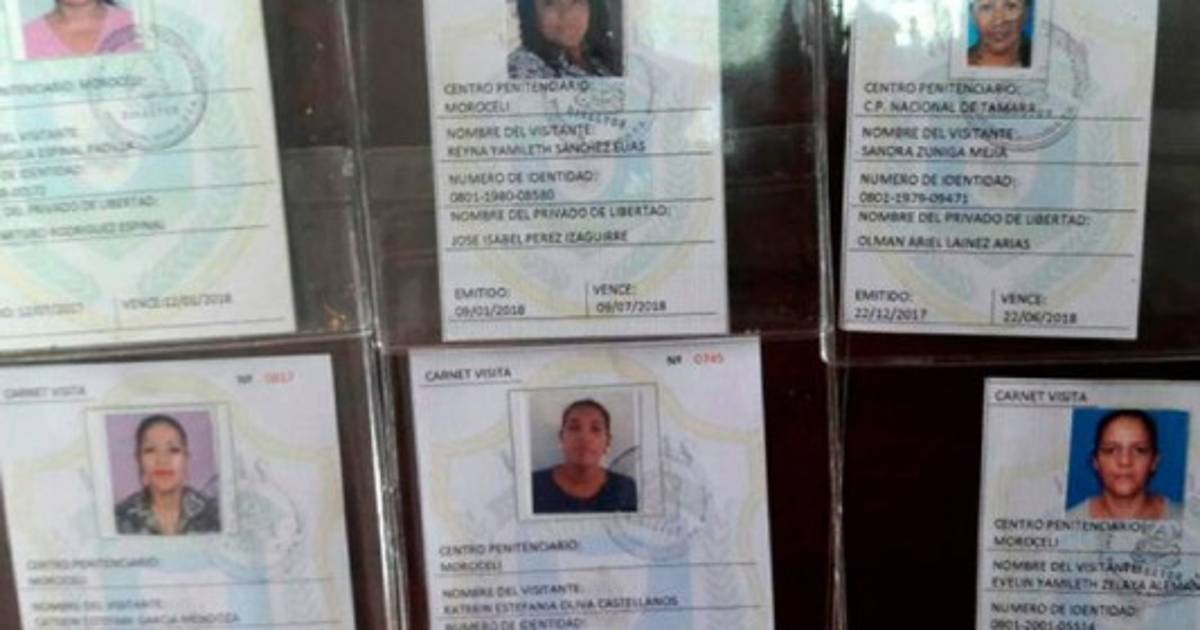 MOROCELI
DEL VISITANTE:
ESPINAL PADILLA
DE IDENTIDAD:
DEL PRIVADO DE LIBERTAD:
ARTURO RODRIGUEZ ESPINAL
VENCE:12/01/2018
CENTRO PENITENCIARIO:
MOROCELI
NOMBRE DEL VISITANTE:
REYNA YAMILETH SANCHEZ ELIAS
NUMERO DE IDENTIDAD:
0801-1980-08580
NOMBRE DEL PRIVADO DE LIBERTAD:
JOSE ISABEL PEREZ IZAGUIRRE
EMITIDO:
09/01/2018
VENCE:
09/07/2018
CENTRO PENITENCIARIO:
C.P. NACIONAL DE TAMARA
NOMBRE DEL VISITANTE:
SANDRA ZUNIGA MEJIA
NUMERO DE IDENTIDAD:
0801-1979-09471
NOMBRE DEL PRIVADO DE LIBERTAD:
OLMAN ARIEL LAINEZ ARIAS
EMITIDO:
22/12/2017
VENCE:
22/06/2018
CARNET VISITA
Nº 0817
CENTRO PENITENCIARIO:
MOROCELI
NOMBRE DEL VISITANTE:
GARCIA MENDOZA
CARNET VISITA
Nº 0745
CENTRO PENITENCIARIO:
MOROCELI
NOMBRE DEL VISITANTE:
KATERIN ESTEFANIA OLIVA CASTELLANOS
NUMERO DE IDENTIDAD:
CARNET VISITA
CENTRO PENITENCIARIO:
MOROCELI
NOMBRE DEL VISITANTE:
EVELIN YAMILETH ZELAYA
NUMERO DE IDENTIDAD:
0801-2001-05514